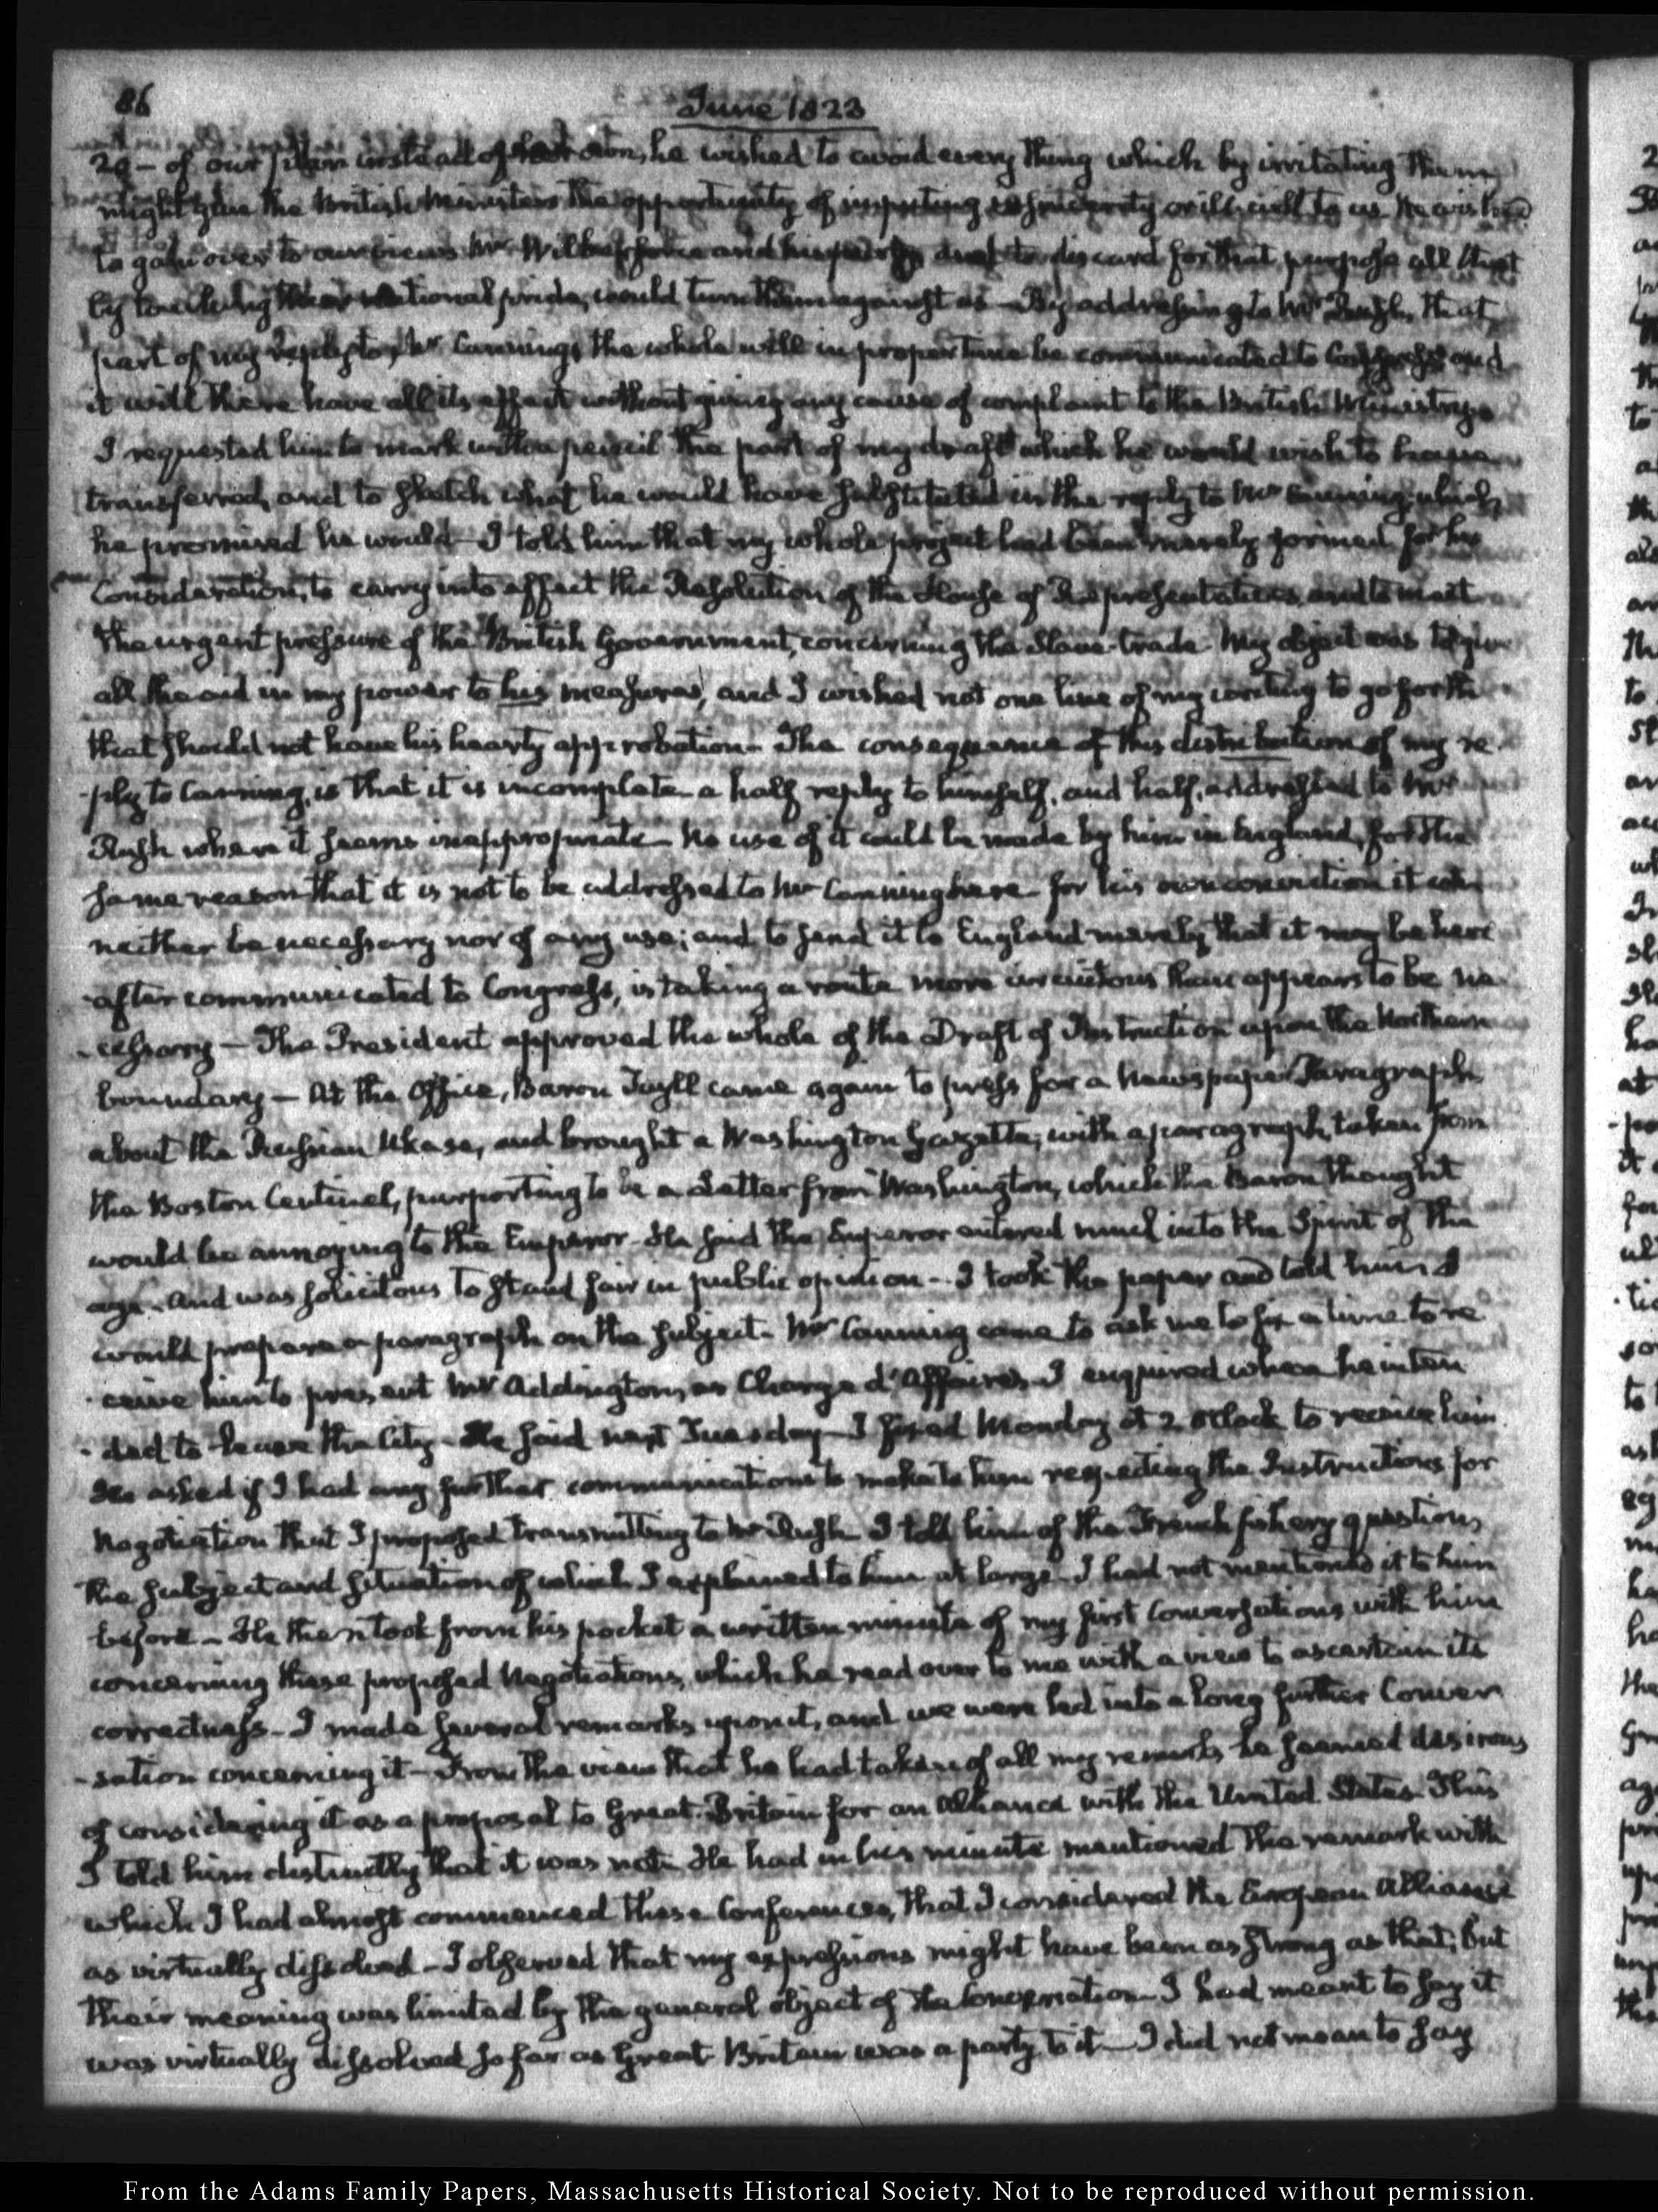 86
June 1823
20 – of our plan instead of their own, he wished to avoid every thing which by irritating them
might give the British Ministers the opportunity of imputing insincerity or ill-will to us. He wished
to gain over to our views Mr Wilberforce and his party and to discard for that purpose all that
by touching their national pride, would turn them against us – By addressing to Mr Rush, that
part of my reply to Mr Canning, the whole will in proper time be communicated to Congress and
it will there have all its effect without giving any cause of complaint to the British Ministry.
I requested him to mark with a pencil the part of my draft which he would wish to have
transferred, and to sketch what he would have substituted in the reply to Mr Canning; which
he promised he would – I told him that my whole project had been merely formed for his
Consideration, to carry into effect the Resolution of the House of Representatives, and to meet
the urgent pressure of the British Government, concerning the Slave-trade. My object was to give
all the aid in my power to his measures, and I wished not one line of my writing to go forth
that should not have his hearty approbation – The consequence of this distribution of my re-
-ply to Canning, is that it is incomplete a half reply to himself, and half, addressed to Mr
Rush where it seems inappropriate – No use of it could be made by him in England, for the
same reason that it is not to be addressed to Mr Canning here – for his own conviction it can
neither be necessary nor of any use; and to send it to England merely that it may be here
-after communicated to Congress, is taking a route more circuitous than appears to be ne
-cessary – The President approved the whole of the Draft of Instruction upon the Northern
boundary – At the Office, Baron Tuyll came again to press for a Newspaper Paragraph
about the Russian Ukase, and brought a Washington Gazette, with a paragraph, taken from
the Boston Centinel, purporting to be a Letter from Washington, which the Baron thought
would be annoying to the Emperor – He said the Emperor entered much into the Spirit of the
age – And was solicitous to stand fair in public opinion – I took the paper and told him I
would prepare a paragraph on the subject – Mr Canning came to ask me to fix a time to re
-ceive him to present Mr Addington, as Chargé d'Affaires – I enquired when he inten
-ded to leave the City – He said next Tuesday – I fixed Monday at 2 o'clock to receive him
He asked if I had any further communications to make to him respecting the Instructions for
Negotiation that I proposed transmitting to Mr Rush – I told him of the French fishery question,
the subject and situation of which I explained to him at large – I had not mentioned it to him
before – He then took from his pocket a written minute of my first Conversations with him
concerning these proposed Negotiations, which he read over to me with a view to ascertain its
correctness – I made several remarks upon it, and we were led into a long further Conver
-sation concerning it – From the view that he had taken of all my remarks he seemed desirous
of considering it as a proposal to Great-Britain for an Alliance with the United States – This
I told him distinctly that it was not – He had in his minute mentioned the remark with
which I had almost commenced these Conferences, that I considered the European Alliance
as virtually dissolved – I observed that my expressions might have been as strong as that; but
their meaning was limited by the general object of the Conversation – I had meant to say it
was virtually dissolved so far as Great-Britain was a party to it – I did not mean to say
From the Adams Family Papers, Massachusetts Historical Society. Not to be reproduced without permission.